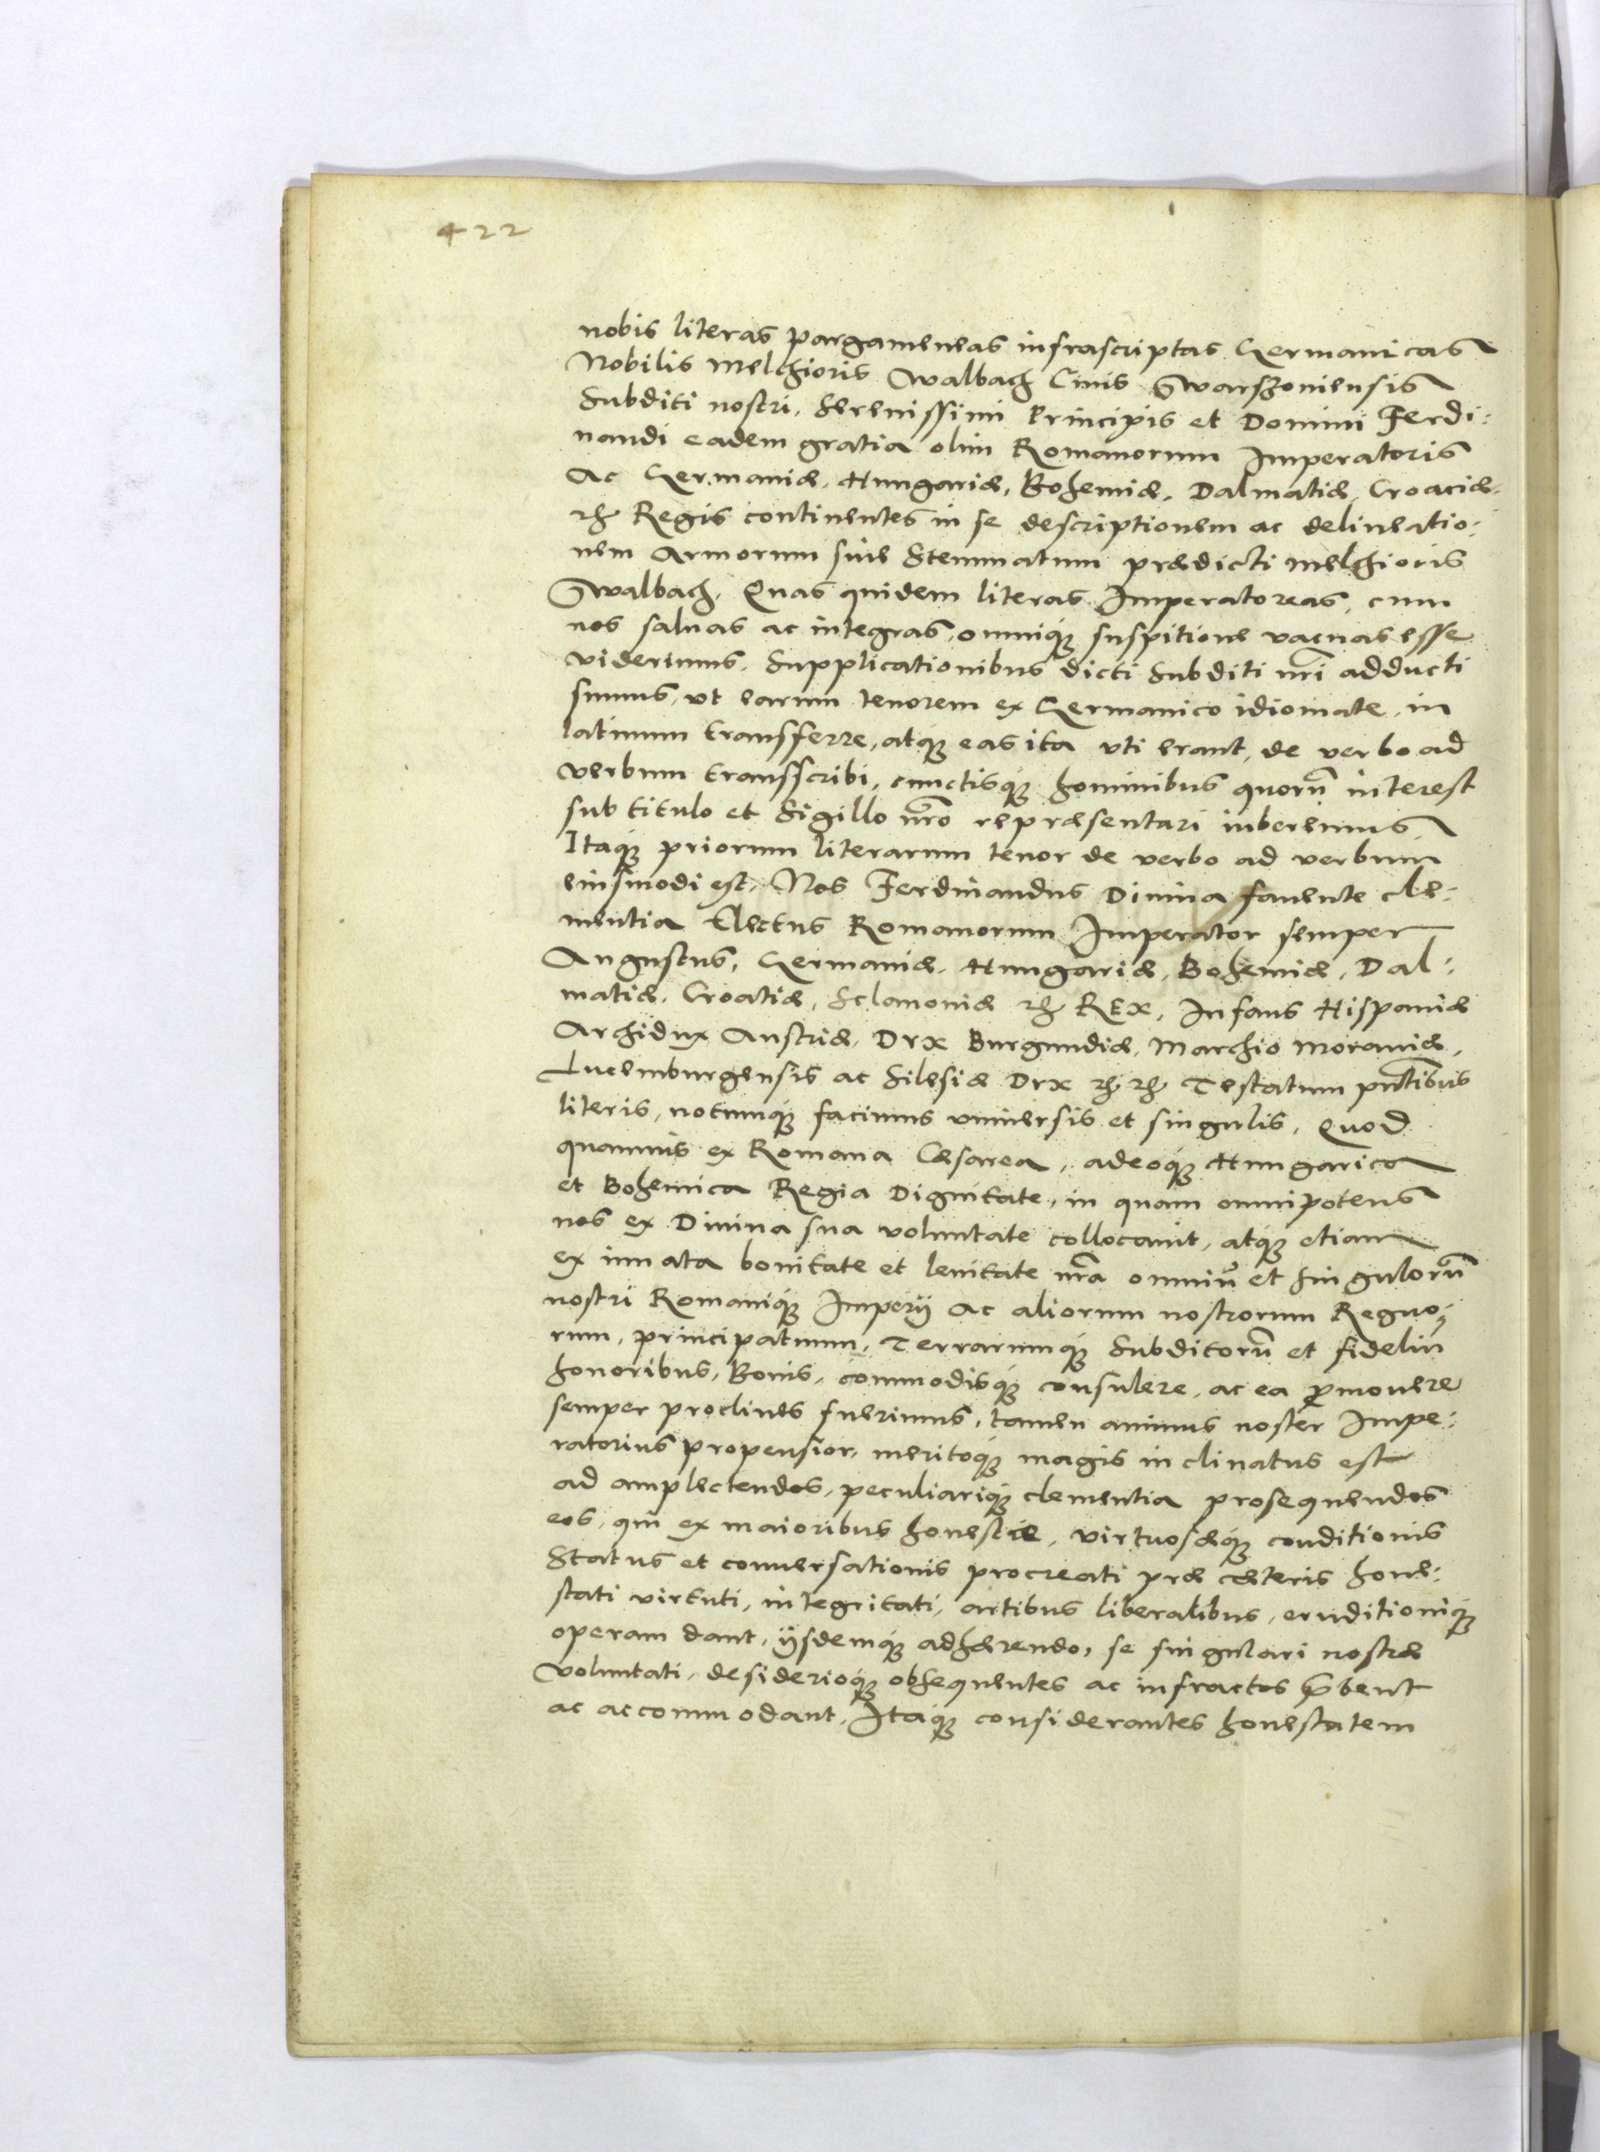 422
nobis literas pargameneas infrascriptas Germanicas
Nobilis Melchioris Walbach Civis Warszoviensis
Subditi nostri, Serenissimi Principis et Domini Ferdi:
nandi eadem gratia olim Romanorum Imperatoris
Ac Germaniæ, Hungariæ, Bohemiæ, Dalmatiæ, Croaciæ.
etc Regis continentes in se descriptionem ac delineatio:
nem Armorum sive Stemmatum prædicti Melchioris
Walbach. Quas quidem literas Imperatoreas, cum
nos salvas ac integras, omnique suspitione vacuas esse
viderimus, Supplicationibus dicti Subditi nri adducti
sumus, ut earum tenorem ex Germanico idiomate, in
latinum transferre, atque eas ita uti erant, de verbo ad
verbum transscribi, cunctisque hominibus quorũ interest
sub titulo et Sigillo nro repræsentari iuberemus.
Itaque priorum literarum tenor de verbo ad verbum
eiusmodi est. Nos Ferdinandus Divina favente cle:
mentia Electus Romanorum Imperator semper
Augustus, Germaniæ, Hungariæ, Bohemiæ, Dal:
matiæ, Croatiæ, Sclavoniæ etc REX, Infans Hispaniæ
Archidux Austriæ, Dux Burgundiæ, Marchio Moraviæ,
Lucemburgensis ac Silesiæ Dux etc etc Testatum pntibus
literis, notumque facimus universis et singulis, Quod
quamvis ex Romana Cæsarea, adeoque Hungarica
et Bohemica Regia Dignitate, in quam omnipotens
nos ex Divina sua voluntate collocavit, atque etiam
ex innata bonitate et lenitate nra omniũ et singulorũ
nostri Romanique Imperij Ac aliorum nostrorum Regno:
rum, principatuum, Terrarumque Subditorũ et fideliũ
honoribus, Bonis, commodisque consulere, ac ea promovere
semper proclives fuerimus, tamen animus noster Impe:
ratorius propensior, meritoque magis inclinatus est
ad amplectendos, peculiarique clementia prosequendos
eos, qui ex maioribus honestæ, virtuosæque conditionis
Status et conversationis procreati præ cæteris hone:
stati virtuti, integritati, artibus liberalibus, eruditionique
operam dant, ijsdemque adhærendo, se singulari nostræ
voluntati, desiderioque obsequentes ac infractos præbent
ac accommodant. Itaque considerantes honestatem